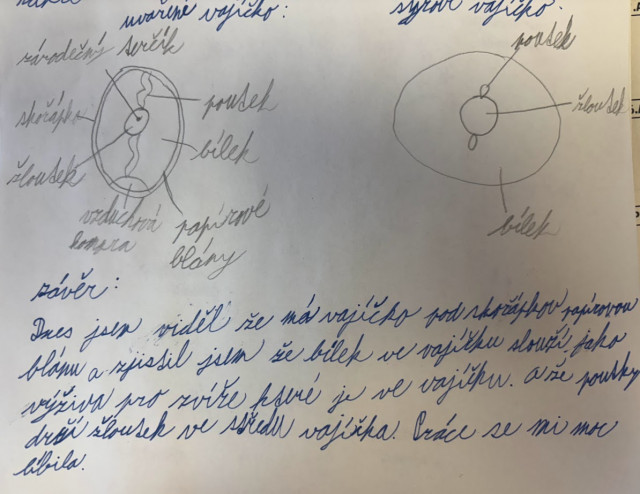 uvařené vajíčko:
syrové vajíčko:
zárodečný terčík
poutek
skořápka
žloutek
bílek
vzduchová
komora
papírové
blány
poutek
žloutek
bílek
závěr:
Dnes jsem viděl že má vajíčko pod skořápkou papírovou
blánu a zjistil jsem že bílek ve vajíčku slouží jako
výživa pro zvíře které je ve vajíčku. a že poutky
drží žloutek ve středu vajíčka. Práce se mi moc
líbila.